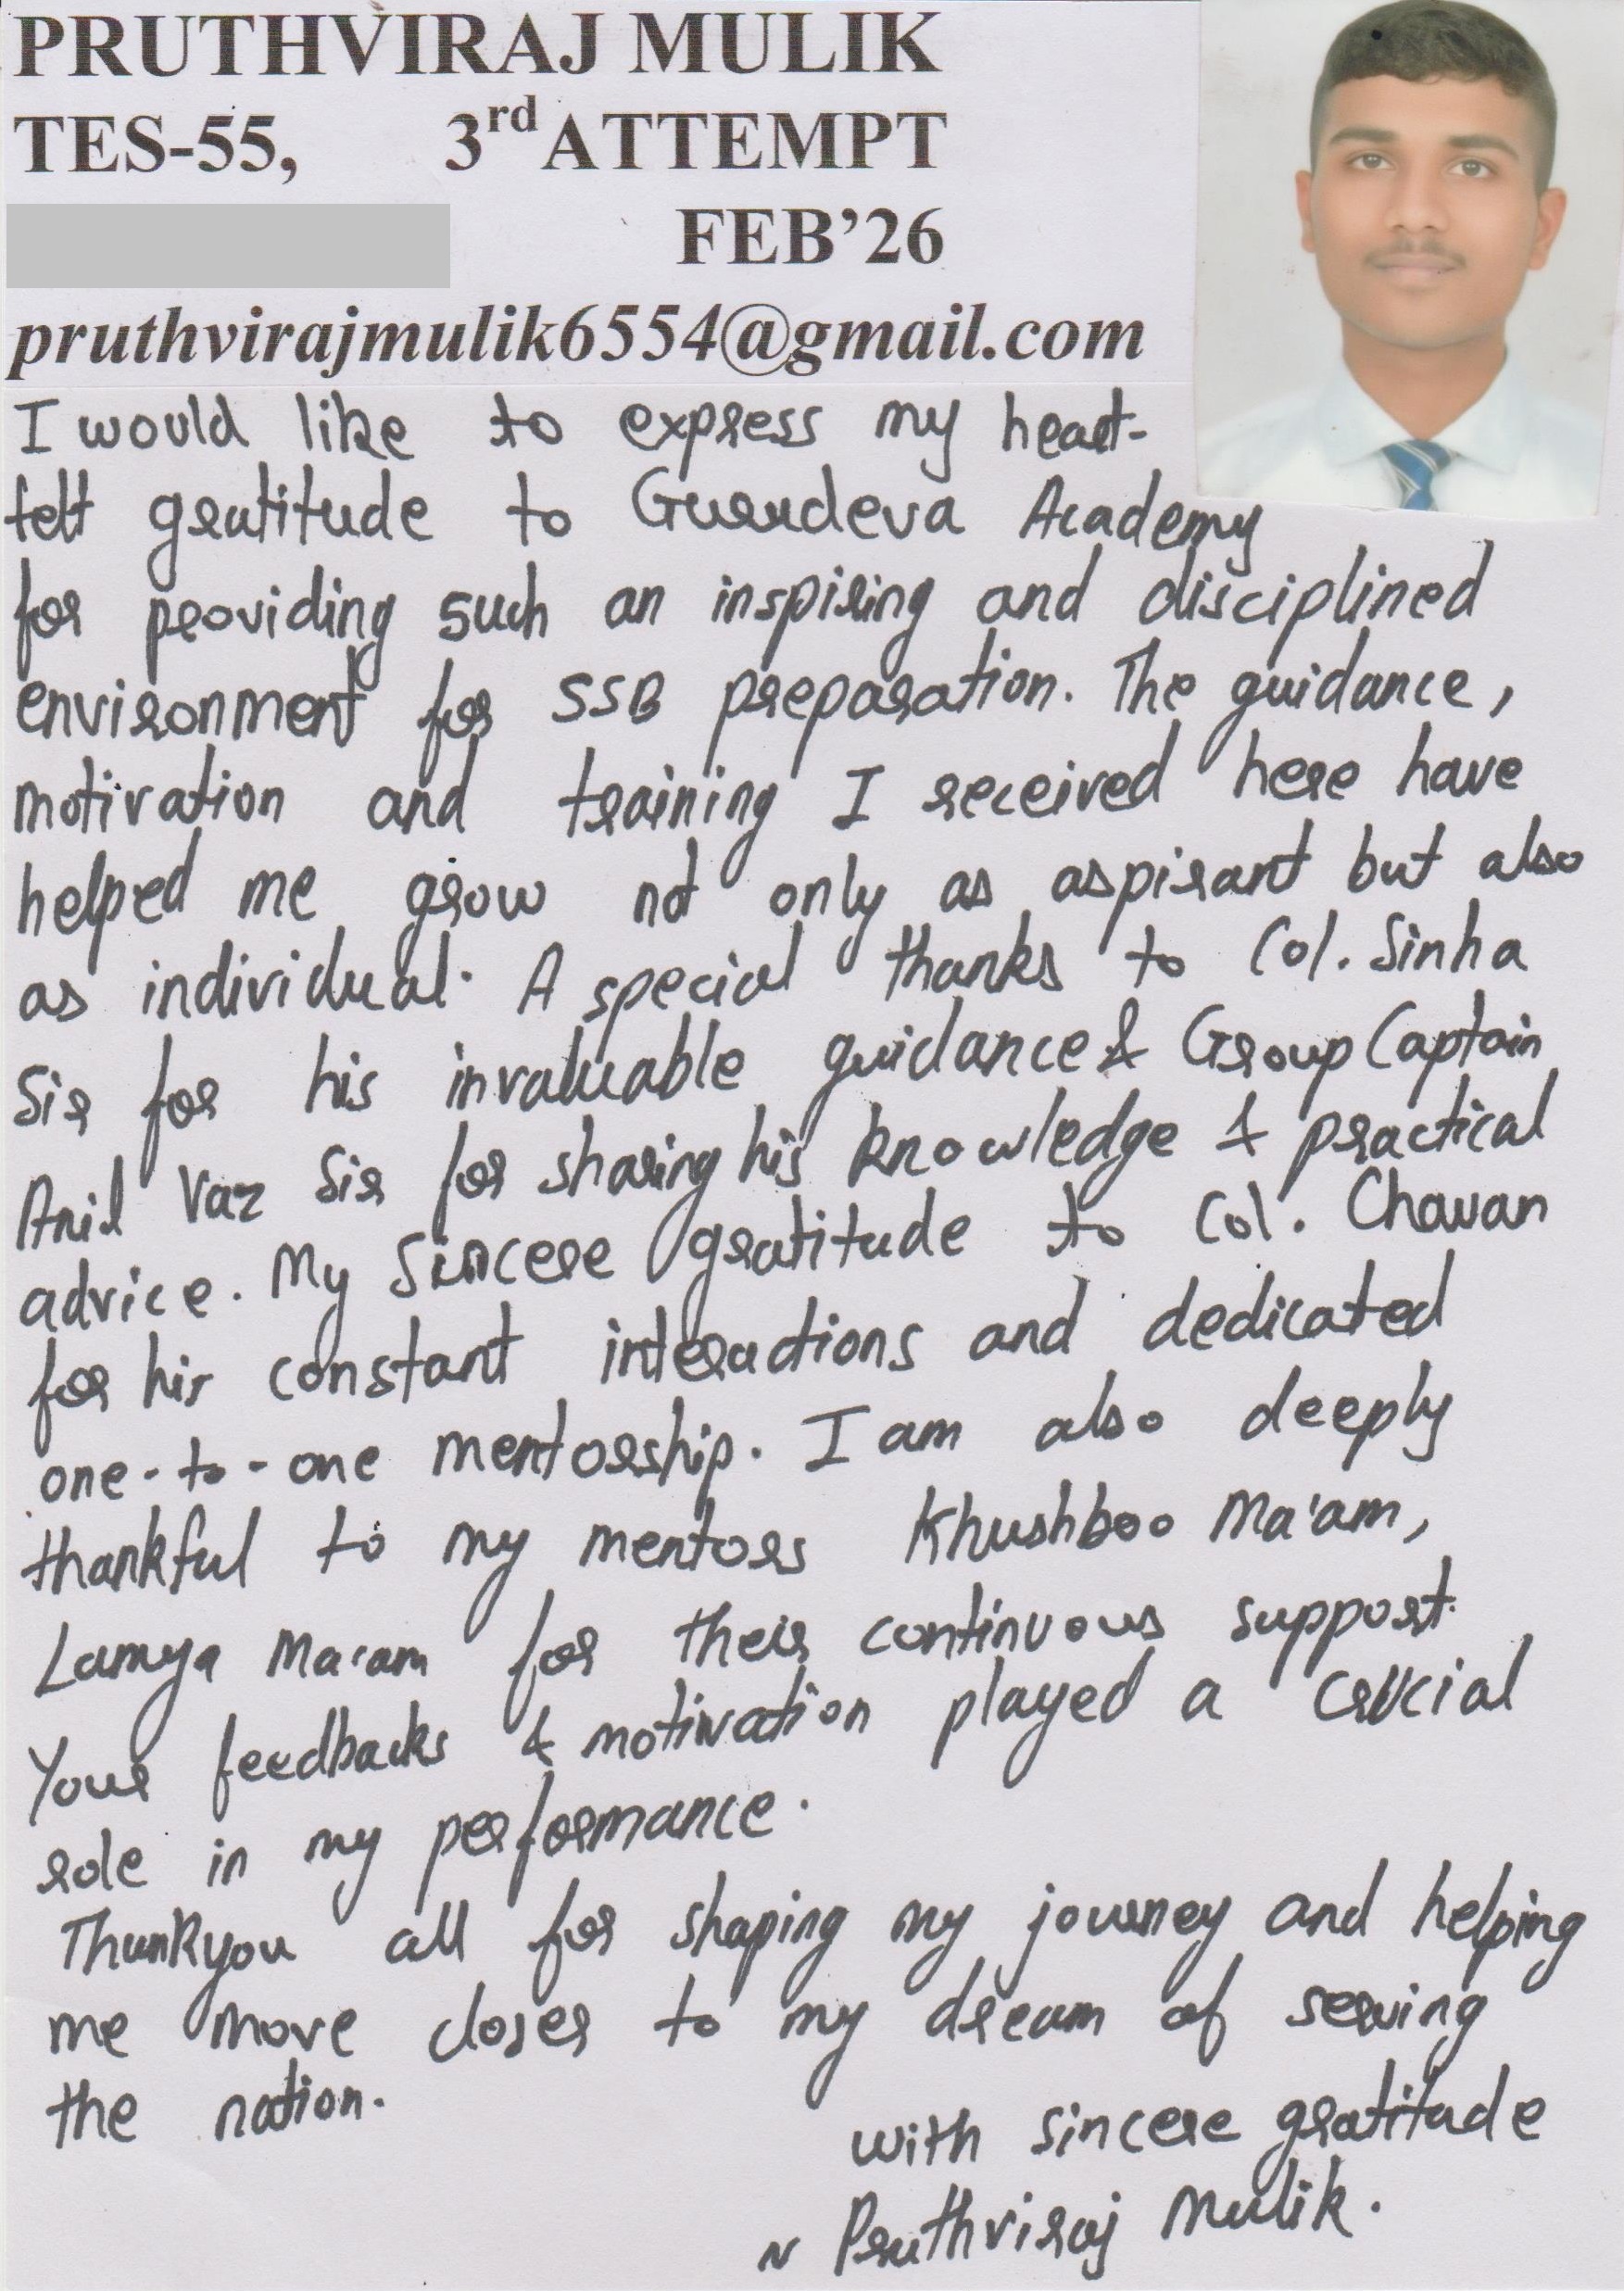 PRUTHVIRAJ MULIK
TES-55, 3rd ATTEMPT
FEB'26
pruthvirajmulik6554@gmail.com
I would like to express my heart-
felt gratitude to Gurudeva Academy
for providing such an inspiring and disciplined
environment for SSB preparation. The guidance,
motivation and training I received here have
helped me grow not only as aspirant but also
as individual. A special thanks to Col. Sinha
Sir for his invaluable guidance & Group Captain
Anil Vaz Sir for sharing his knowledge & practical
advice. My Sincere gratitude to Col. Chavan
for his constant interactions and dedicated
one-to-one mentorship. I am also deeply
thankful to my mentors Khushboo Ma'am,
Lamya Ma'am for their continuous support.
Your feedbacks & motivation played a crucial
role in my performance.
Thankyou all for shaping my journey and helping
me move closer to my dream of serving
the nation.
with sincere gratitude
~ Pruthviraj Mulik.